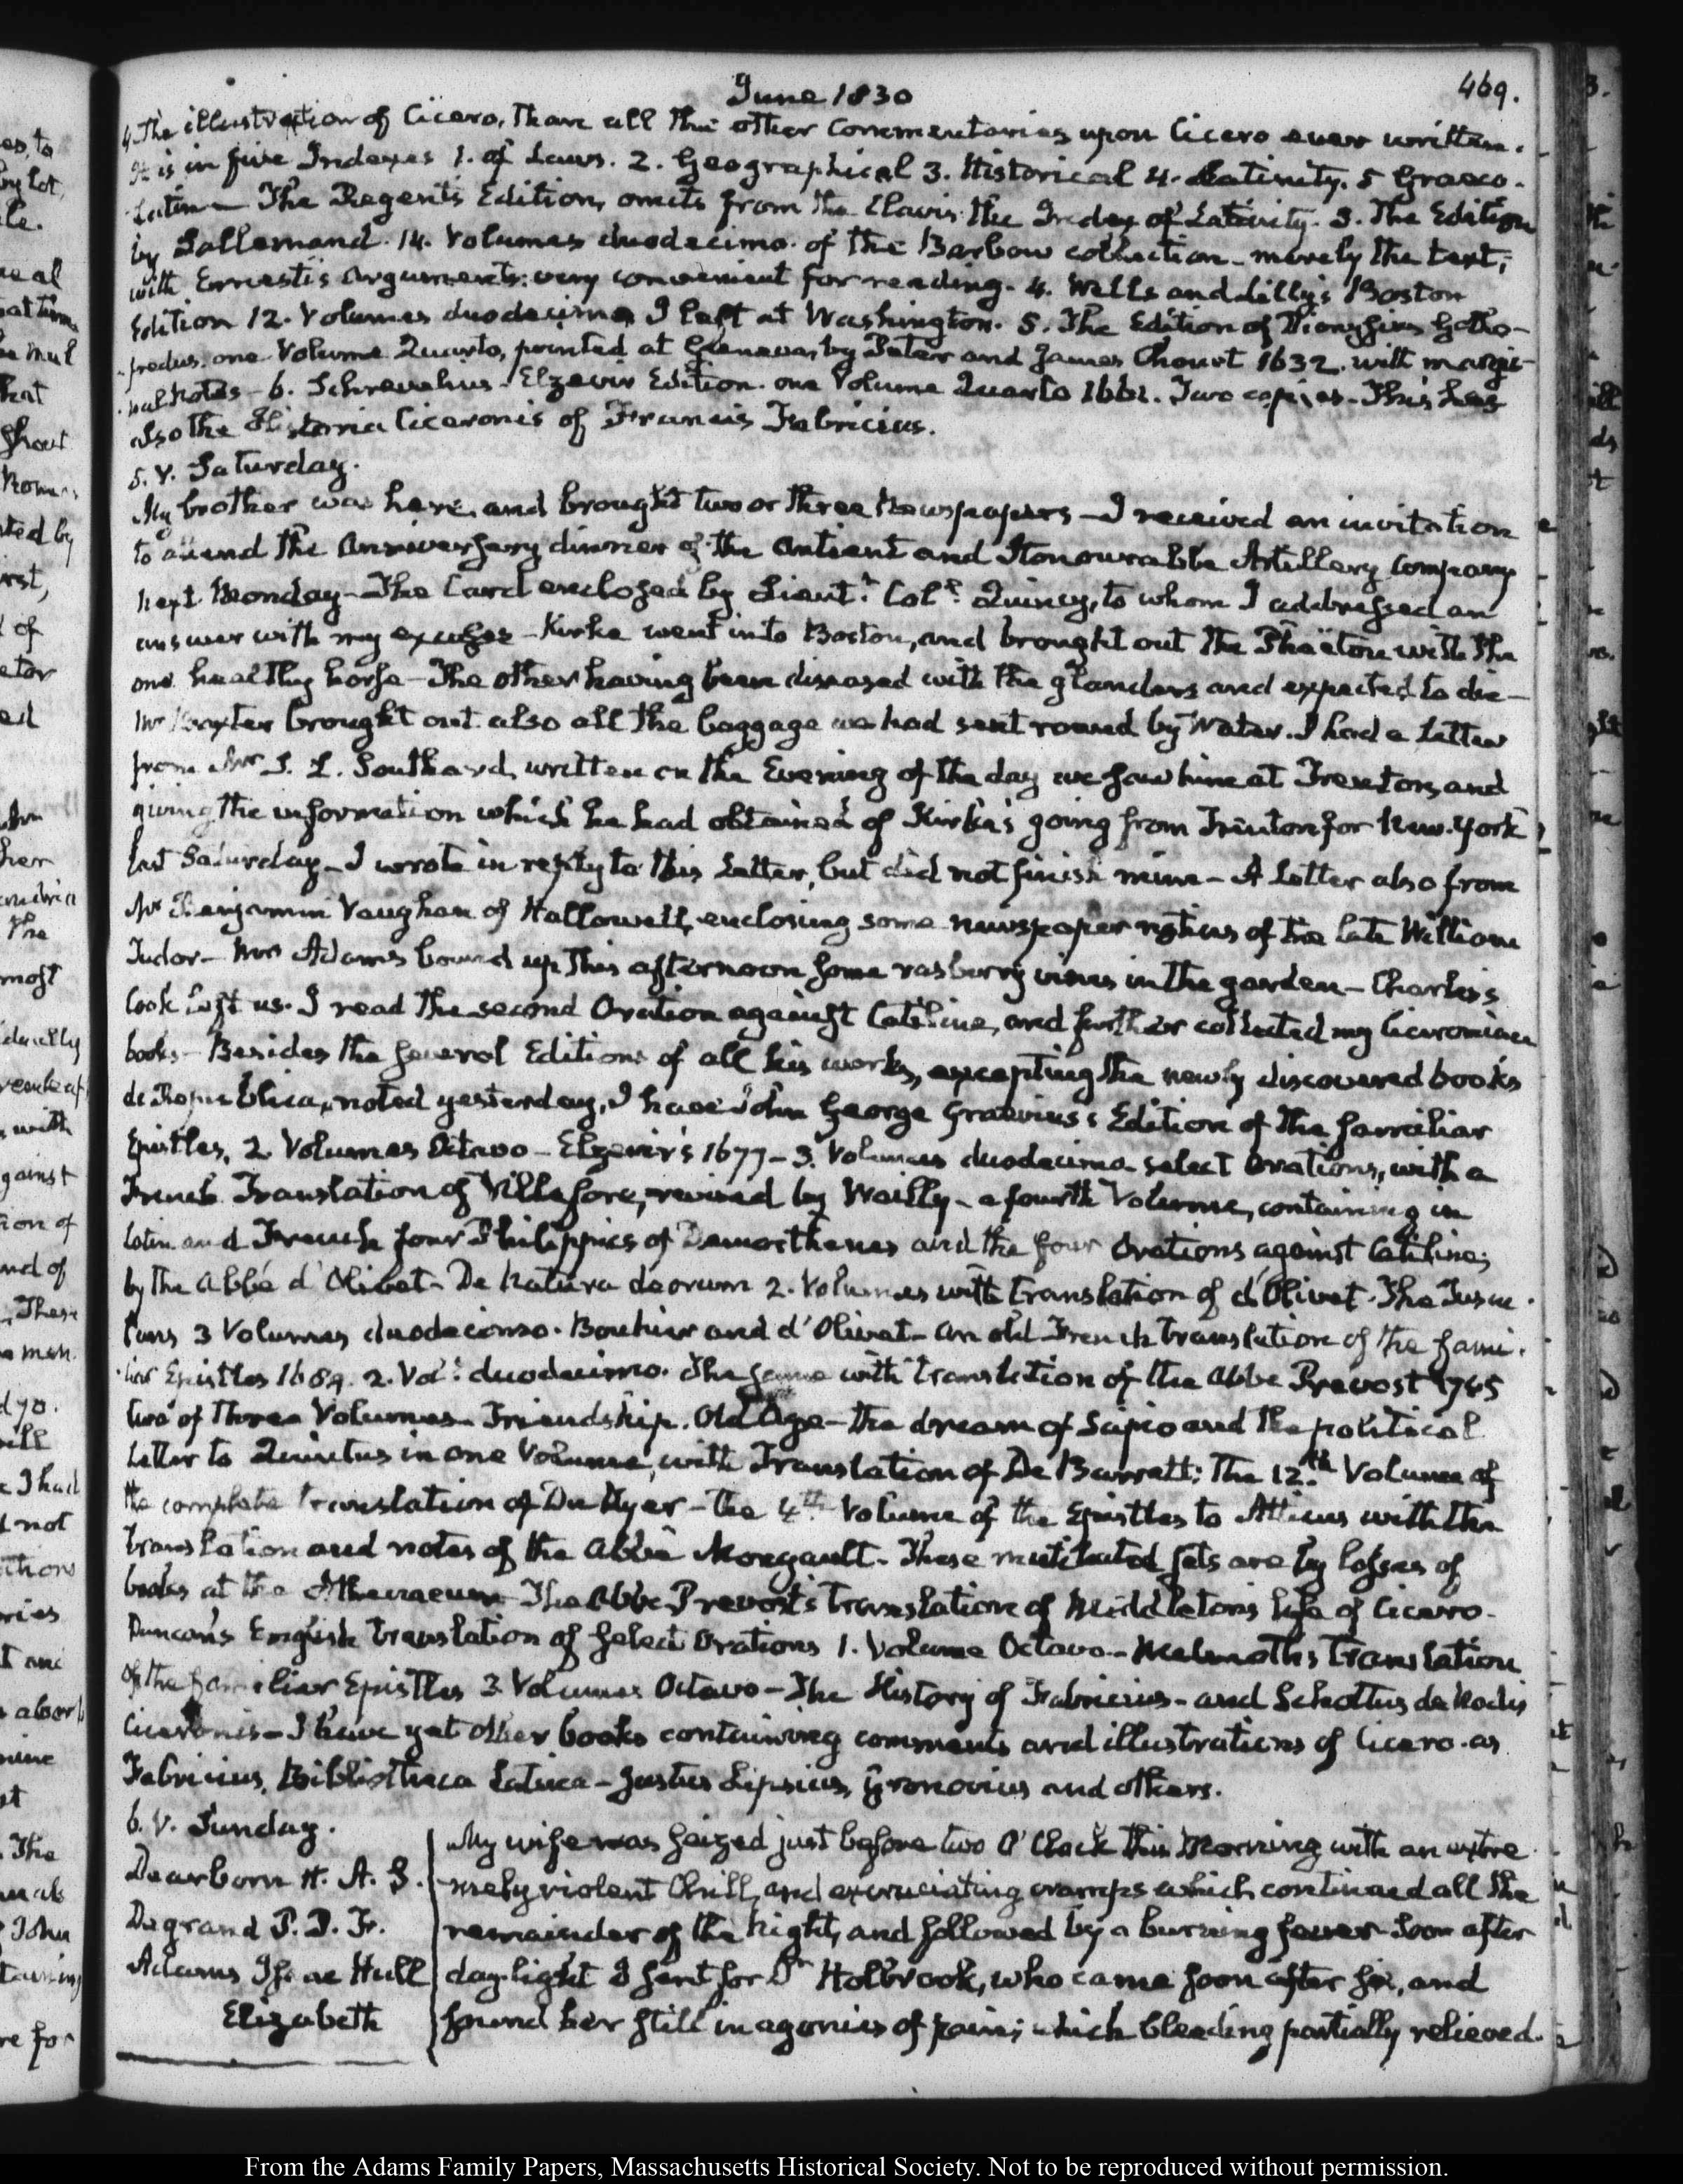 June 1830
469.
4. The illustration of Cicero, than all the other Commentaries upon Cicero ever written.
It is in five Indexes 1. of Laws. 2. Geographical 3. Historical 4. Latinity. 5 Graeco-
Latin — The Regent's Edition, omits from the Clavis the Index of Latinity. 3. The Edition
by Lallemand. 14. Volumes duodecimo. of the Barbou collection — merely the text,
with Ernesti's arguments: very convenient for reading. 4. Wells and Lilly's Boston
Edition 12. Volumes duodecimo I left at Washington. 5. The Edition of Dionysius Gotho-
-fredus. one Volume Quarto, printed at Geneva, by Peter and James Chouet 1632. with margi-
-nal notes — 6. Schrevelius — Elzevir Edition. one Volume Quarto 1661. Two copies — This has
also the Historia Ciceronis of Francis Fabricius.
5. V. Saturday.
My brother was here, and brought two or three Newspapers — I received an invitation
to attend the Anniversary dinner of the Antient and Honourable Artillery Company
next Monday — The Card enclosed by Lieutt. Coll. Quincy, to whom I addressed an
answer with my excuse — Kirke went into Boston, and brought out the Phaëton with the
one healthy horse — The other having been diseased with the glanders and expected to die —
Mr Baxter brought out also all the baggage we had sent round by Water. I had a Letter
from Mr S. L. Southard, written on the Evening of the day we saw him at Trenton, and
giving the information which he had obtained of Kirke's going from Trenton for New-York
last Saturday — I wrote in reply to this Letter, but did not finish mine — A Letter also from
Mr Benjamin Vaughan of Hallowell, enclosing some newspaper notices of the late William
Tudor — Mrs Adams bound up this afternoon some rasberry vines in the garden — Charles's
Cook left us. I read the second Oration against Catiline, and further collected my Ciceronian
books — Besides the several Editions of all his works, excepting the newly discovered books
de Republica, noted yesterday, I have John George Graevius's Edition of the familiar
Epistles, 2. Volumes Octavo — Elzevir's 1677 — 3. Volumes duodecimo select Orations, with a
French Translation of Villefore, revised by Wailly — a fourth Volume, containing in
Latin and French four Philippics of Demosthenes and the four Orations against Catiline;
by the Abbé d'Olivet — De Natura deorum 2. Volumes with translation of d'Olivet. The Tuscu-
lans 3 Volumes duodecimo. Bouhier and d'Olivet — An old French translation of the fami-
-liar Epistles 1689. 2. Vols: duodecimo. The same with translation of the Abbé Prevost 1745
two of three Volumes — Friendship. Old Age — the dream of Scipio and the political
Letter to Quintus in one Volume, with Translation of De Barrett; The 12.th Volume of
the complete translation of Du Ryer — the 4th. Volume of the Epistles to Atticus with the
translation and notes of the Abbé Mongault — These mutilated sets are by losses of
books at the Athenaeum — The Abbé Prevost's translation of Middleton's life of Cicero.
Duncan's English translation of select Orations 1. Volume Octavo — Melmoth's translation
of the familiar Epistles 3 Volumes Octavo — The History of Fabricius — and Schottus de Nodis
Ciceronis — I have yet other books containing comments and illustrations of Cicero — as
Fabricius, Bibliotheca Latina — Justus Lipsius, Gronovius and others.
6. V. Sunday.
Dearborn H. A. S.
Degrand P. P. F.
Adams Isaac Hull
Elizabeth
My wife was seized just before two O'Clock this Morning with an extre-
-mely violent Chill, and excruciating cramps which continued all the
remainder of the Night, and followed by a burning fever — Soon after
day-light I sent for Dr Holbrook, who came soon after six, and
found her still in agonies of pain; which bleeding partially relieved.
From the Adams Family Papers, Massachusetts Historical Society. Not to be reproduced without permission.